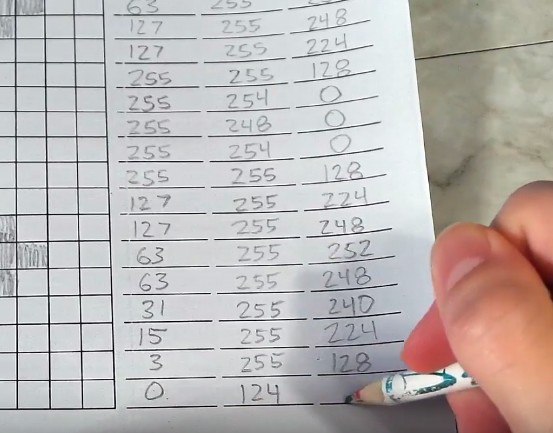 63 255
127 255 248
127 255 224
255 255 128
255 254 0
255 248 0
255 254 0
255 255 128
127 255 224
127 255 248
63 255 252
63 255 248
31 255 240
15 255 224
3 255 128
0 124